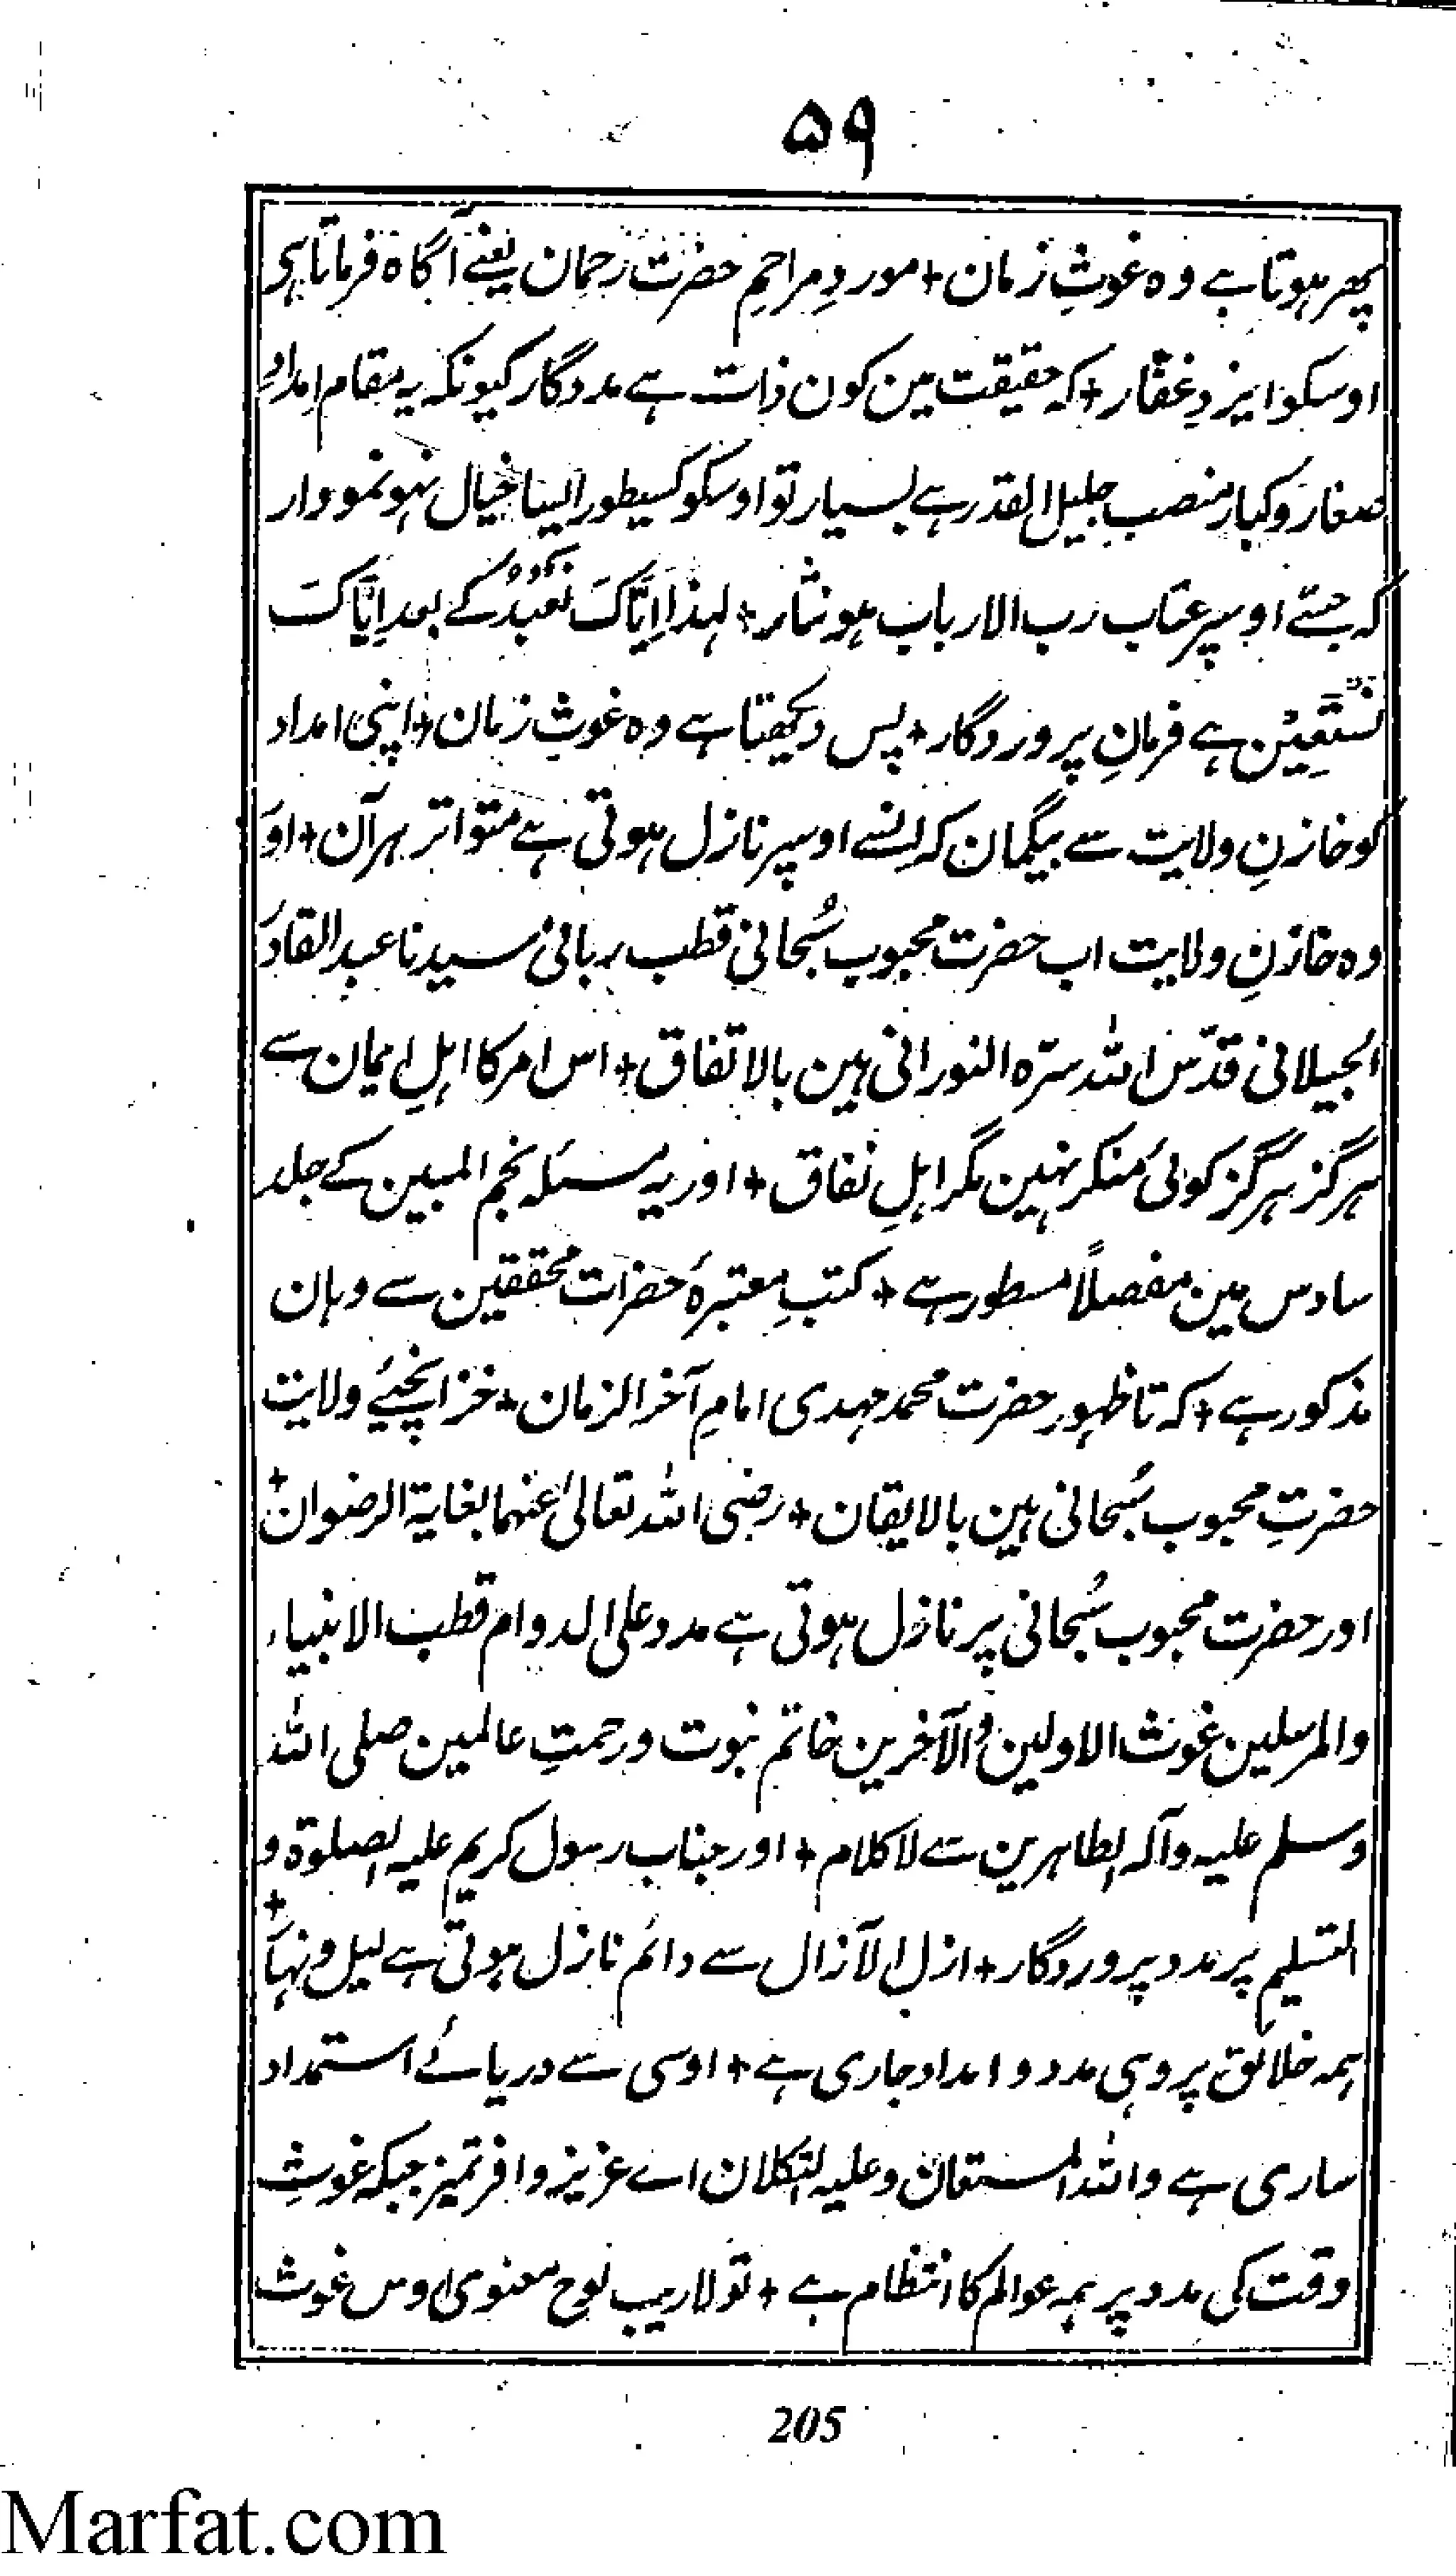 ۵۹
پھر ہوتا ہے وہ غوثِ زمان + موردِ مراحمِ حضرت رحمان یعنے آگاہ فرماتا ہی
اوسکو ایزدِ غفّار + کہ حقیقت مین کون ذات ہے مددگار کیونکہ یہ مقام اِمدادِ
صغار و کبار منصب جلیل القدر ہے بسیار تو اوسکو کسیطور ایسا خیال نہو نمودار
کہ جسّے اوسپر عتاب رب الارباب ہو نثار + لہذا اِیَّاکَ نَعْبُدُ کے بعد اِیَّاکَ
نَسْتَعِیْن ہے فرمانِ پروردگار + پس دیکھتا ہے وہ غوثِ زمان + اپنی امداد
کو خازنِ ولایت سے بیگمان کہ اسّے اوسپر نازل ہوتی ہے متواتر ہر آن + اور
وہ خازنِ ولایت اب حضرت محبوب سُبحانی قطب ربانی سیدنا عبدالقادر
الجیلانی قدّس اللہ سرّہ النورانی ہین بالاتفاق + اس امر کا اہلِ ایمان سے
ہرگز ہرگز کوئی منکر نہین مگر اہلِ نفاق + اور یہ مسئلہ نجم المبین کے جلد
سادس مین مفصلاً مسطور ہے + کتبِ معتبرۂ حضرات محققین سے وہان
مذکور ہے + کہ تا ظہور حضرت محمد مہدی امامِ آخر الزمان + خزانچیئے ولایت
حضرتِ محبوب سُبحانی ہین بالایقان + رضی اللہ تعالیٰ عنہما بغایۃ الرضوان +
اور حضرت محبوب سُبحانی پر نازل ہوتی ہے مدد علی الدوام قطب الانبیاء
والمرسلین غوث الاولین والآخرین خاتم نبوت و رحمتِ عالمین صلی اللہ
وسلم علیہ وآلہ الطاہرین سے لاکلام + اور جناب رسول کریم علیہ الصلوۃ و
التسلیم پر مدد پروردگار + ازل الآزال سے دائم نازل ہوتی ہے لیل و نہار +
ہمہ خلائق پر وہی مدد و امداد جاری ہے + اوسی سے دریائے استمداد
ساری ہے واللہ المستعان وعلیہ التکلان اے عزیز وافر تمیز جبکہ غوثِ
وقت کی مدد پر ہمہ عوالم کا انتظام ہے + تو لاریب لوح معنوی اوس غوث
205
Marfat.com